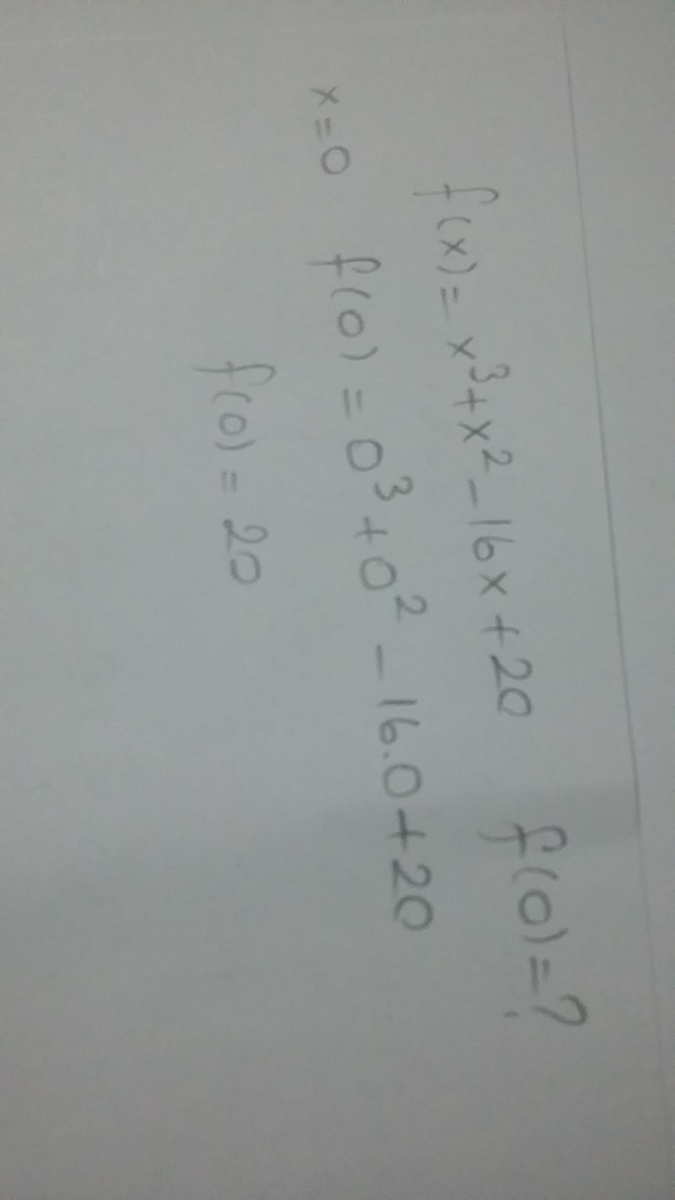 f(x) = x³ + x² - 16x + 20 f(0) = ?
x = 0 f(0) = 0³ + 0² - 16.0 + 20
f(0) = 20